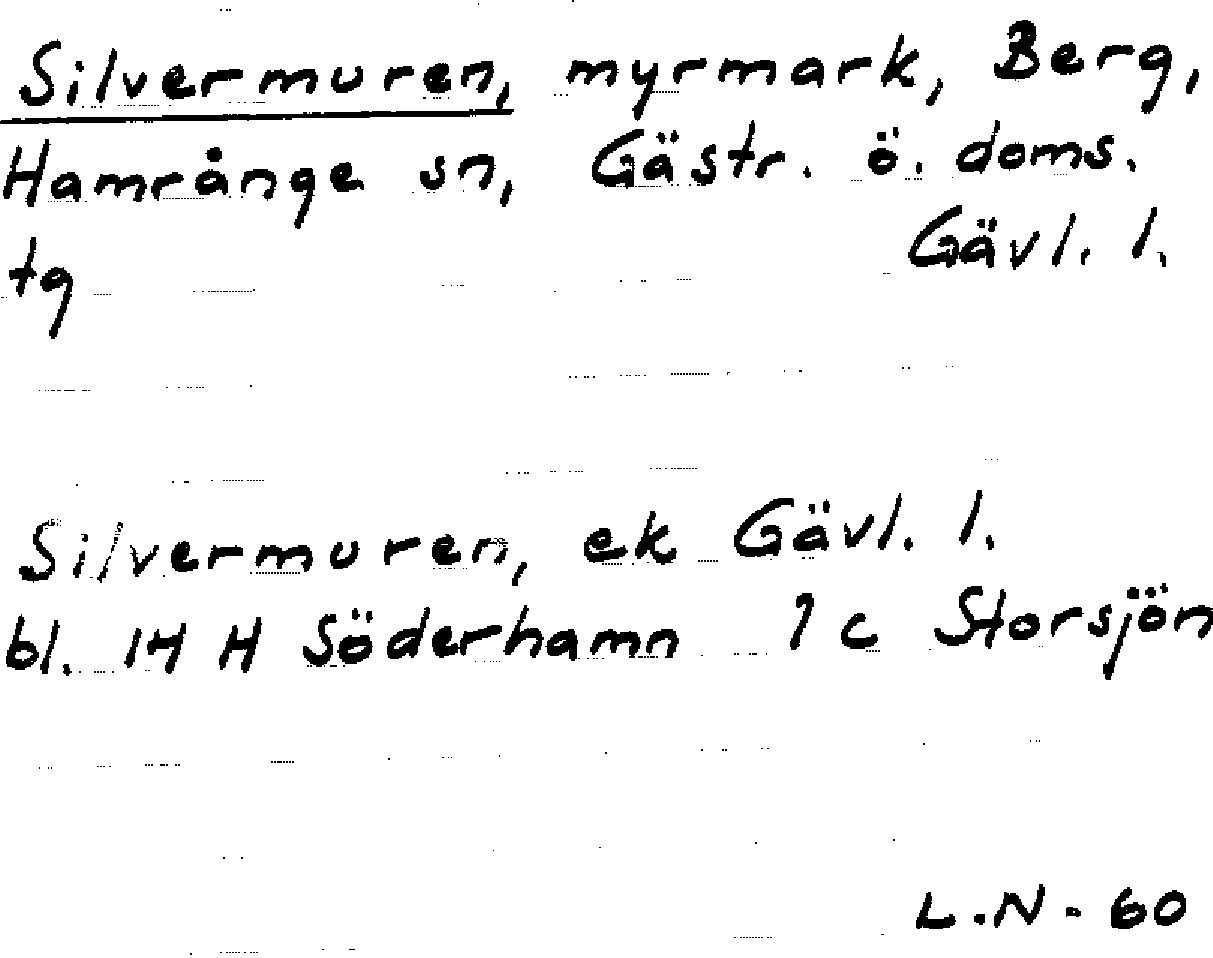 Silvermuren, myrmark, Berg,
Hamrånge sn, Gästr. ö. doms.
Gävl. l.
tg
Silvermuren, ek Gävl. l.
bl. 14 H Söderhamn 1 c Storsjön
L.N. 60